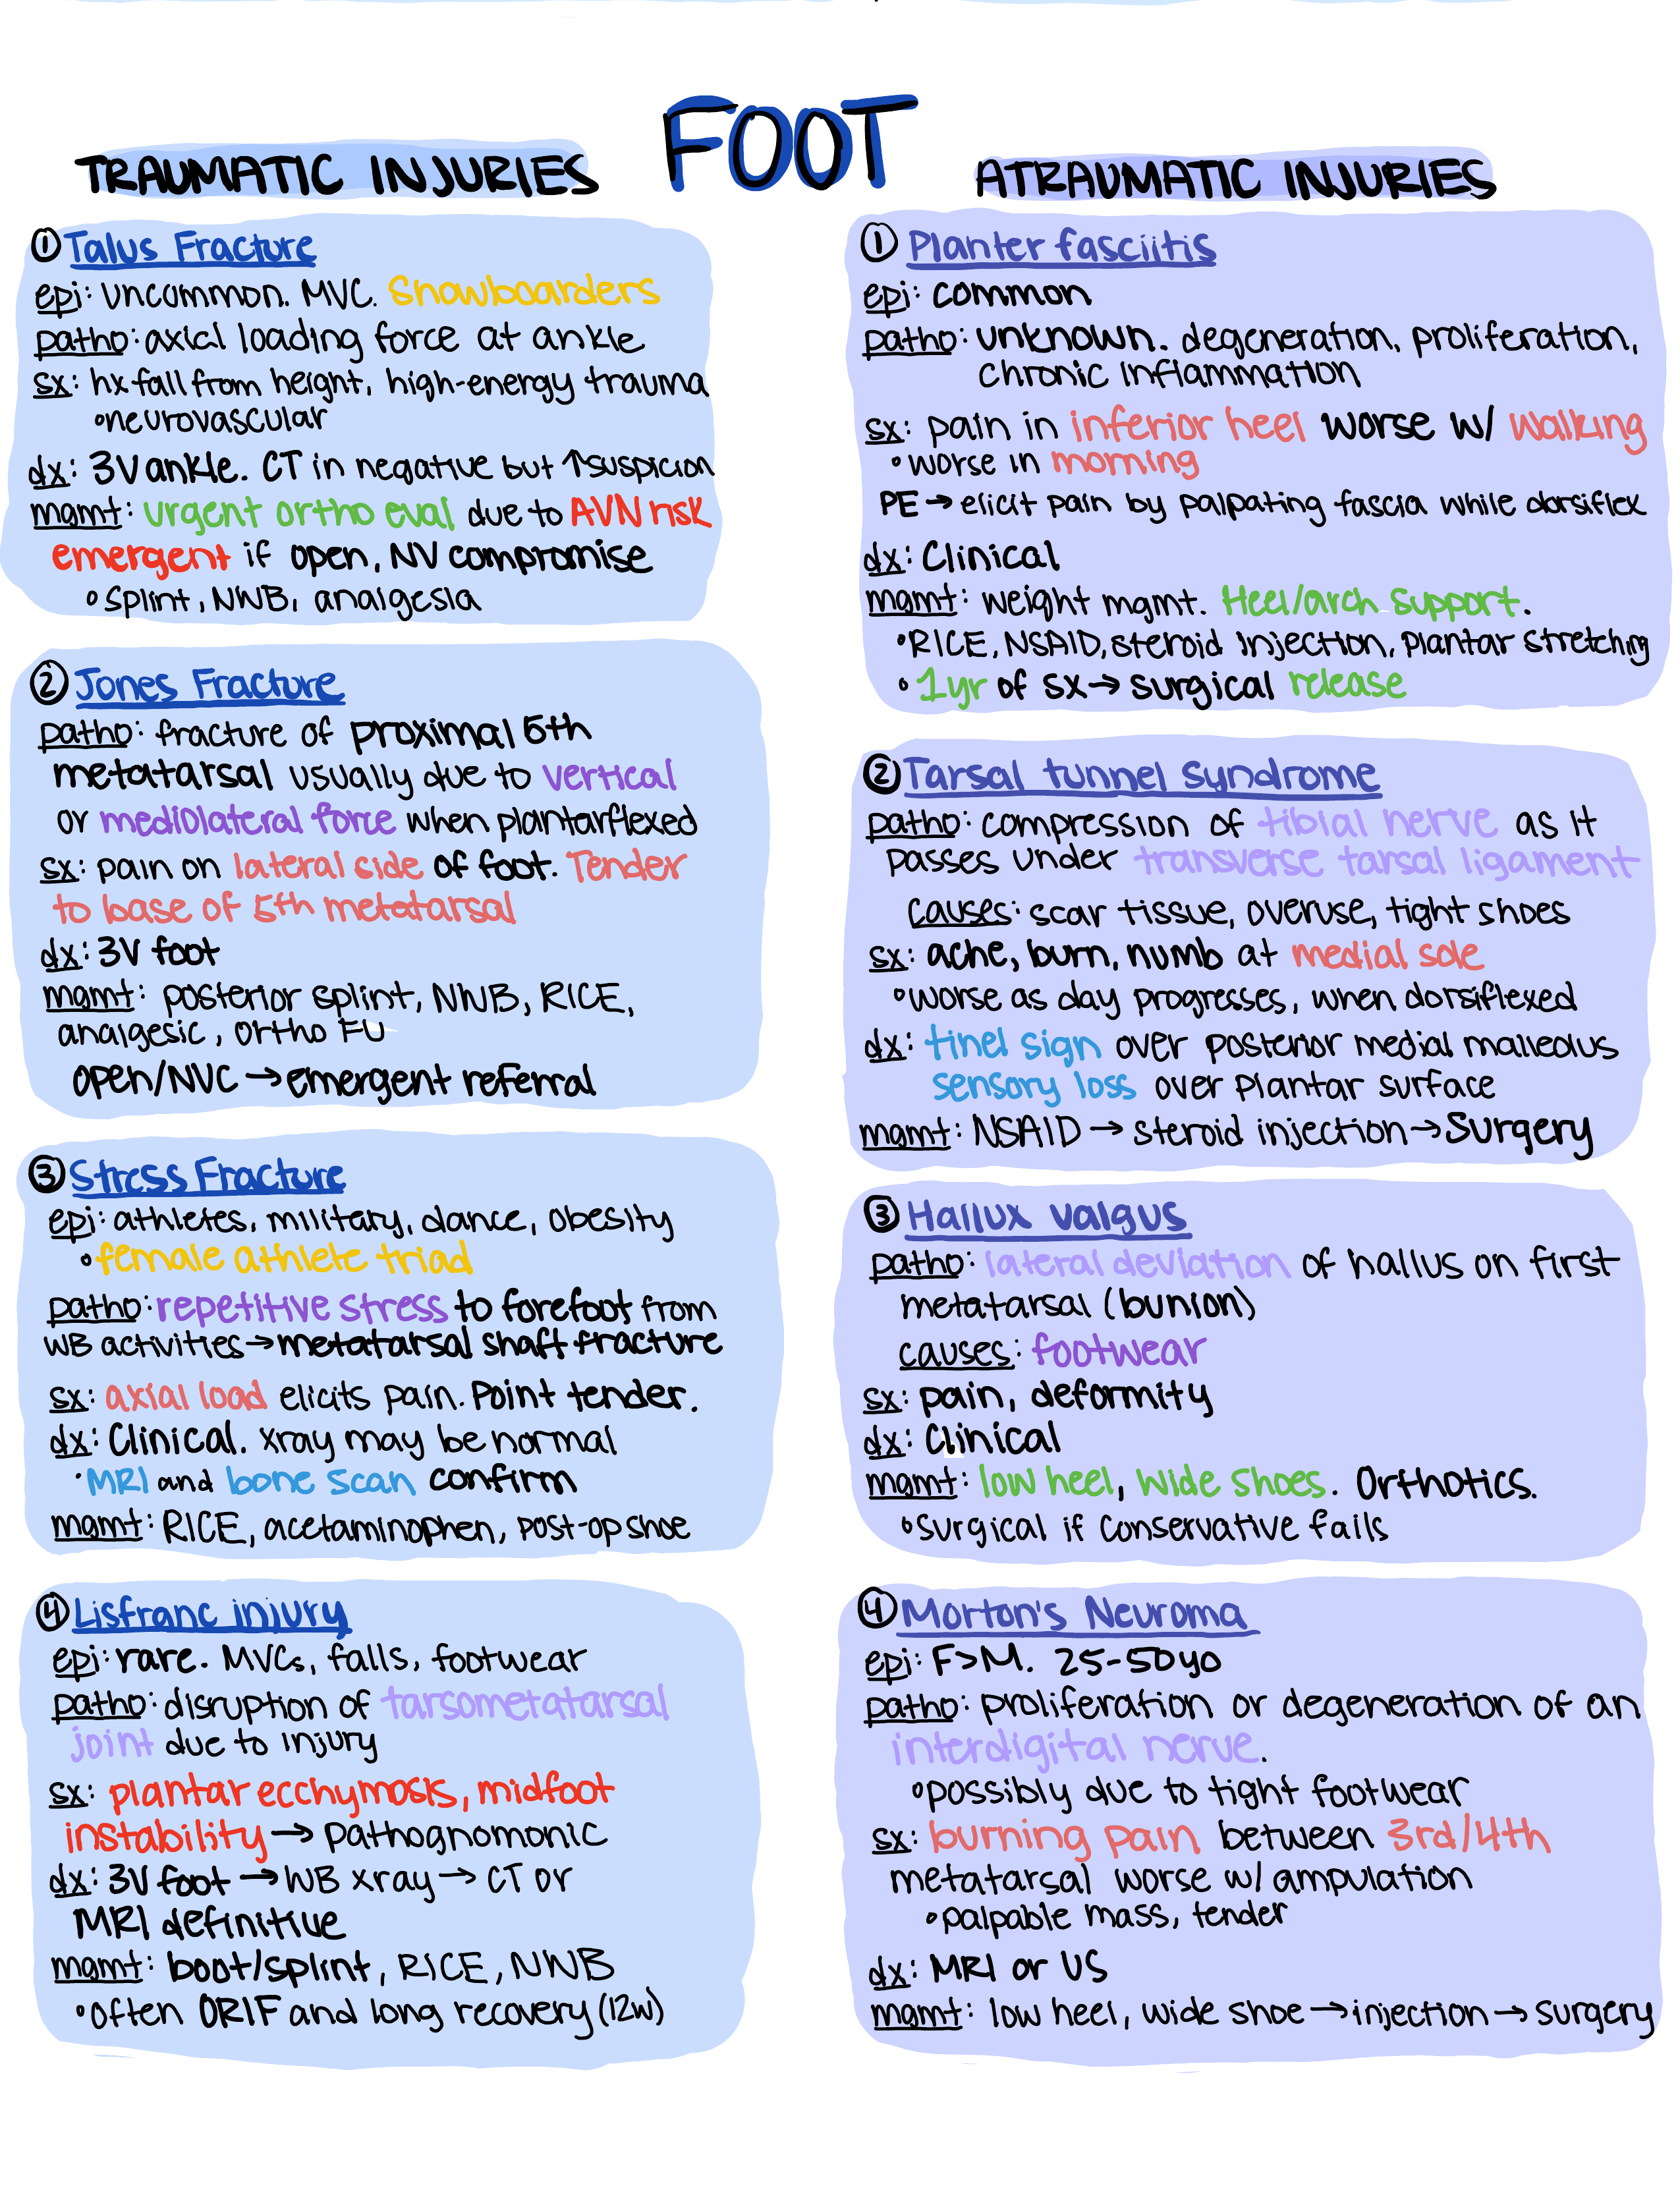 FOOT
TRAUMATIC INJURIES
① Talus Fracture
epi: uncommon. MVC. Snowboarders
patho: axial loading force at ankle
sx: hx fall from height, high-energy trauma
• neurovascular
dx: 3V ankle. CT in negative but ↑suspicion
mgmt: urgent ortho eval due to AVN risk
emergent if open, NV compromise
• splint, NWB, analgesia
② Jones Fracture
patho: fracture of proximal 5th
metatarsal usually due to vertical
or mediolateral force when plantarflexed
sx: pain on lateral side of foot. Tender
to base of 5th metatarsal
dx: 3V foot
mgmt: posterior splint, NWB, RICE,
analgesic, ortho FU
open/NVC → emergent referral
③ Stress Fracture
epi: athletes, military, dance, obesity
• female athlete triad
patho: repetitive stress to forefoot from
WB activities → metatarsal shaft fracture
sx: axial load elicits pain. Point tender.
dx: Clinical. xray may be normal
• MRI and bone scan confirm
mgmt: RICE, acetaminophen, post-op shoe
④ Lisfranc injury
epi: rare. MVCs, falls, footwear
patho: disruption of tarsometatarsal
joint due to injury
sx: plantar ecchymosis, midfoot
instability → pathognomonic
dx: 3V foot → WB xray → CT or
MRI definitive
mgmt: boot/splint, RICE, NWB
• often ORIF and long recovery (12w)
ATRAUMATIC INJURIES
① Planter fasciitis
epi: common
patho: unknown. degeneration, proliferation,
chronic inflammation
sx: pain in inferior heel worse w/ walking
• worse in morning
PE → elicit pain by palpating fascia while dorsiflex
dx: Clinical
mgmt: weight mgmt. Heel/arch support.
• RICE, NSAID, steroid injection, plantar stretching
• 1yr of sx → surgical release
② Tarsal tunnel syndrome
patho: compression of tibial nerve as it
passes under transverse tarsal ligament
causes: scar tissue, overuse, tight shoes
sx: ache, burn, numb at medial sole
• worse as day progresses, when dorsiflexed
dx: tinel sign over posterior medial malleolus
sensory loss over plantar surface
mgmt: NSAID → steroid injection → Surgery
③ Hallux valgus
patho: lateral deviation of hallus on first
metatarsal (bunion)
causes: footwear
sx: pain, deformity
dx: Clinical
mgmt: low heel, wide shoes. Orthotics.
• surgical if conservative fails
④ Morton's Neuroma
epi: F>M. 25-50yo
patho: proliferation or degeneration of an
interdigital nerve.
• possibly due to tight footwear
sx: burning pain between 3rd/4th
metatarsal worse w/ ampulation
• palpable mass, tender
dx: MRI or US
mgmt: low heel, wide shoe → injection → surgery